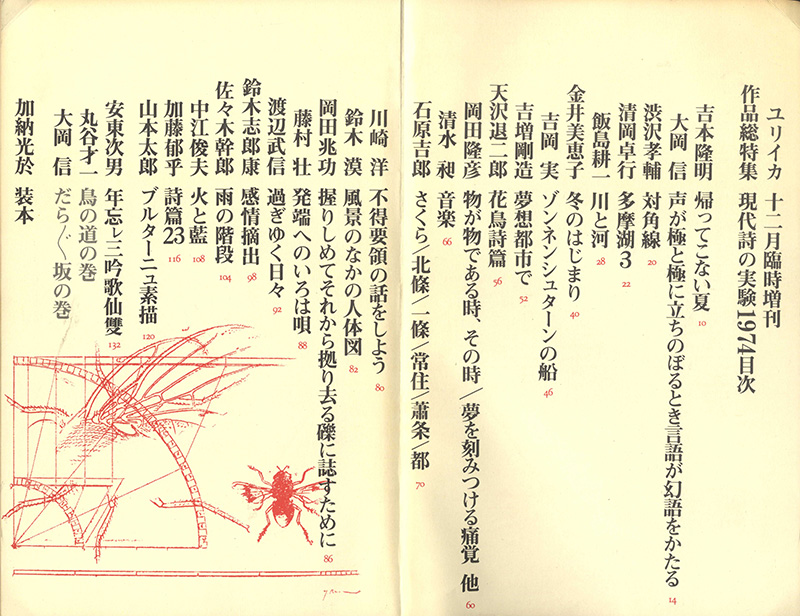 ユリイカ 十二月臨時増刊
作品総特集 現代詩の実験1974目次
吉本隆明 帰ってこない夏 10
大岡 信 声が極と極に立ちのぼるとき言語が幻語をかたる 14
渋沢孝輔 対角線 20
清岡卓行 多摩湖3 22
飯島耕一 川と河 28
金井美恵子 冬のはじまり 40
吉岡 実 ゾンネンシュターンの船 46
吉増剛造 夢想都市で 52
天沢退二郎 花鳥詩篇 56
岡田隆彦 物が物である時、その時/夢を刻みつける痛覚 他 60
清水 昶 音楽 66
石原吉郎 さくら/北條/一條/常住/蕭条/都 70
川崎 洋 不得要領の話をしよう 80
鈴木 漠 風景のなかの人体図 82
岡田兆功 握りしめてそれから拠り去る礫に誌すために 86
藤村 壮 発端へのいろは唄 88
渡辺武信 過ぎゆく日々 92
鈴木志郎康 感情摘出 98
佐々木幹郎 雨の階段 104
中江俊夫 火と藍 108
加藤郁乎 詩篇23 116
山本太郎 ブルターニュ素描 120
安東次男 年忘レ三吟歌仙雙 132
丸谷才一 鳥の道の巻
大岡 信 だら〱坂の巻
加納光於 装本